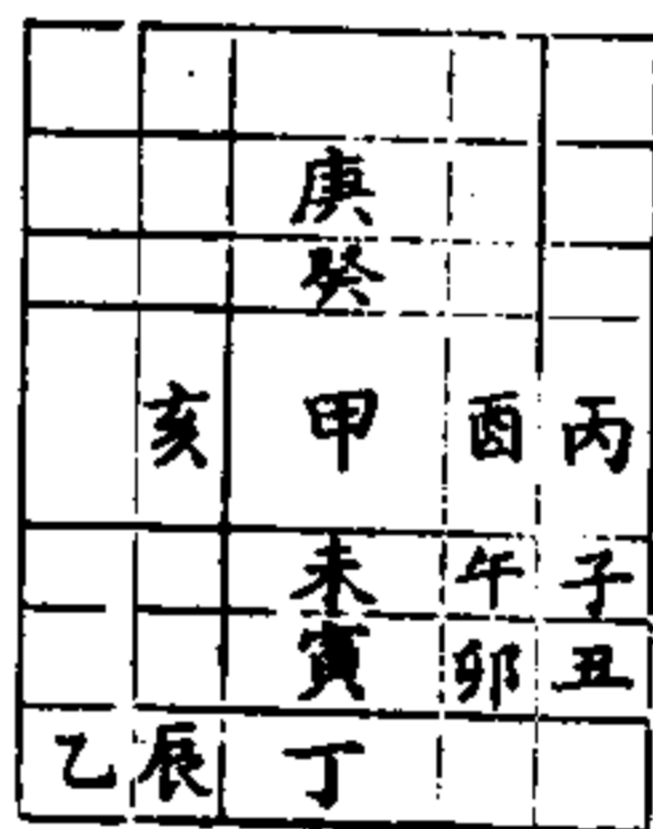 庚
癸
亥 甲 酉 丙
未 午 子
寅 卯 丑
乙 辰 丁